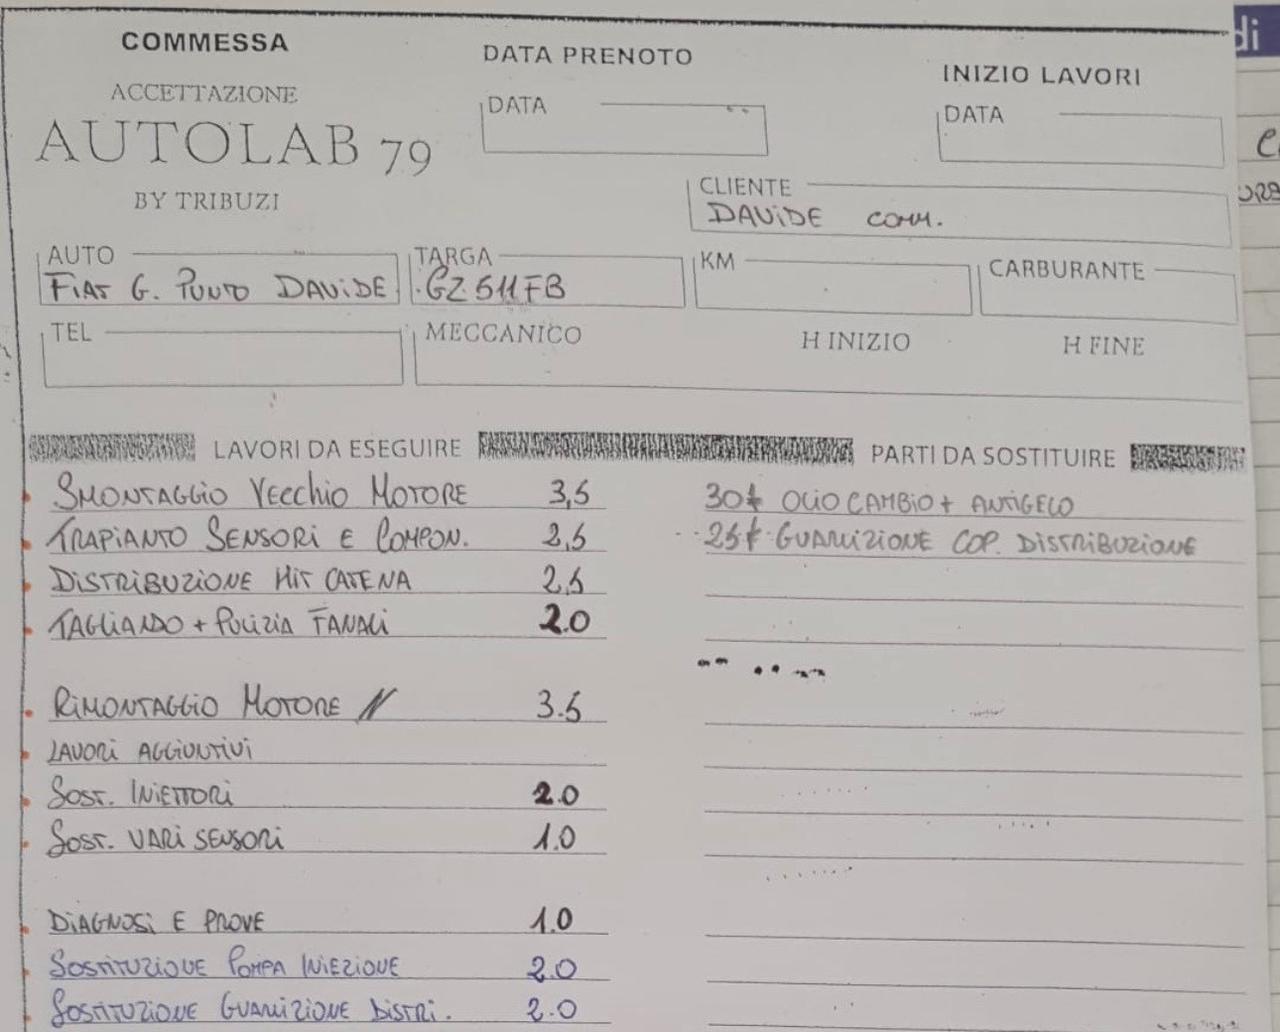 COMMESSA
DATA PRENOTO
INIZIO LAVORI
di
ACCETTAZIONE
DATA
DATA
AUTOLAB 79
BY TRIBUZI
CLIENTE
DAVIDE COMM.
AUTO
TARGA
KM
CARBURANTE
FIAT G. PUNTO DAVIDE
GZ511FB
TEL
MECCANICO
H INIZIO
H FINE
LAVORI DA ESEGUIRE
PARTI DA SOSTITUIRE
SMONTAGGIO VECCHIO MOTORE 3,5
30€ OLIO CAMBIO + ANTIGELO
TRAPIANTO SENSORI E COMPON. 2,5
25€ GUARNIZIONE COP. DISTRIBUZIONE
DISTRIBUZIONE KIT CATENA 2,5
TAGLIANDO + PULIZIA FANALI 2.0
RIMONTAGGIO MOTORE N 3.5
LAVORI AGGIUNTIVI
SOST. INIETTORI 2.0
SOST. VARI SENSORI 1.0
DIAGNOSI E PROVE 1.0
SOSTITUZIONE POMPA INIEZIONE 2.0
SOSTITUZIONE GUARNIZIONE DISTRI. 2.0